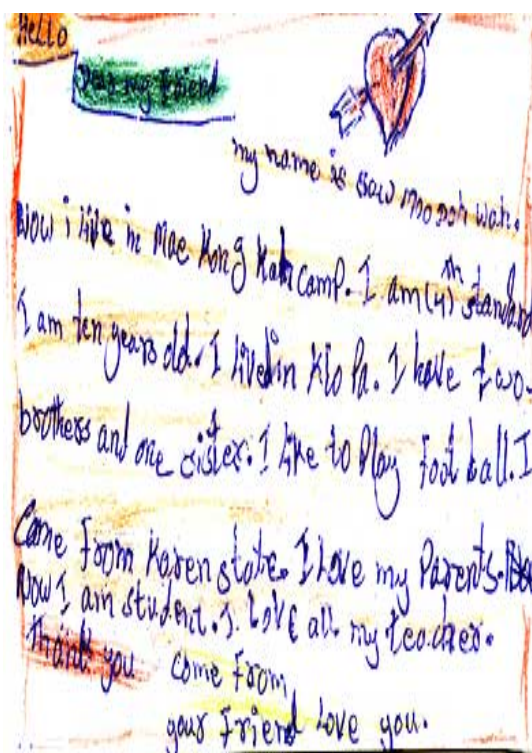 Hello
Dear my friend
my name is saw mho poh wah.
Now i live in Mae Kong Kah camp. I am (4)th standard
I am ten years old. I Lived in Klo Pa. I have two
brothers and one sister. I like to Play foot ball. I
Come from Karen state. I Love my Parents.
Now I am student. I Love all my teacher.
Thank you come from
your friend Love you.